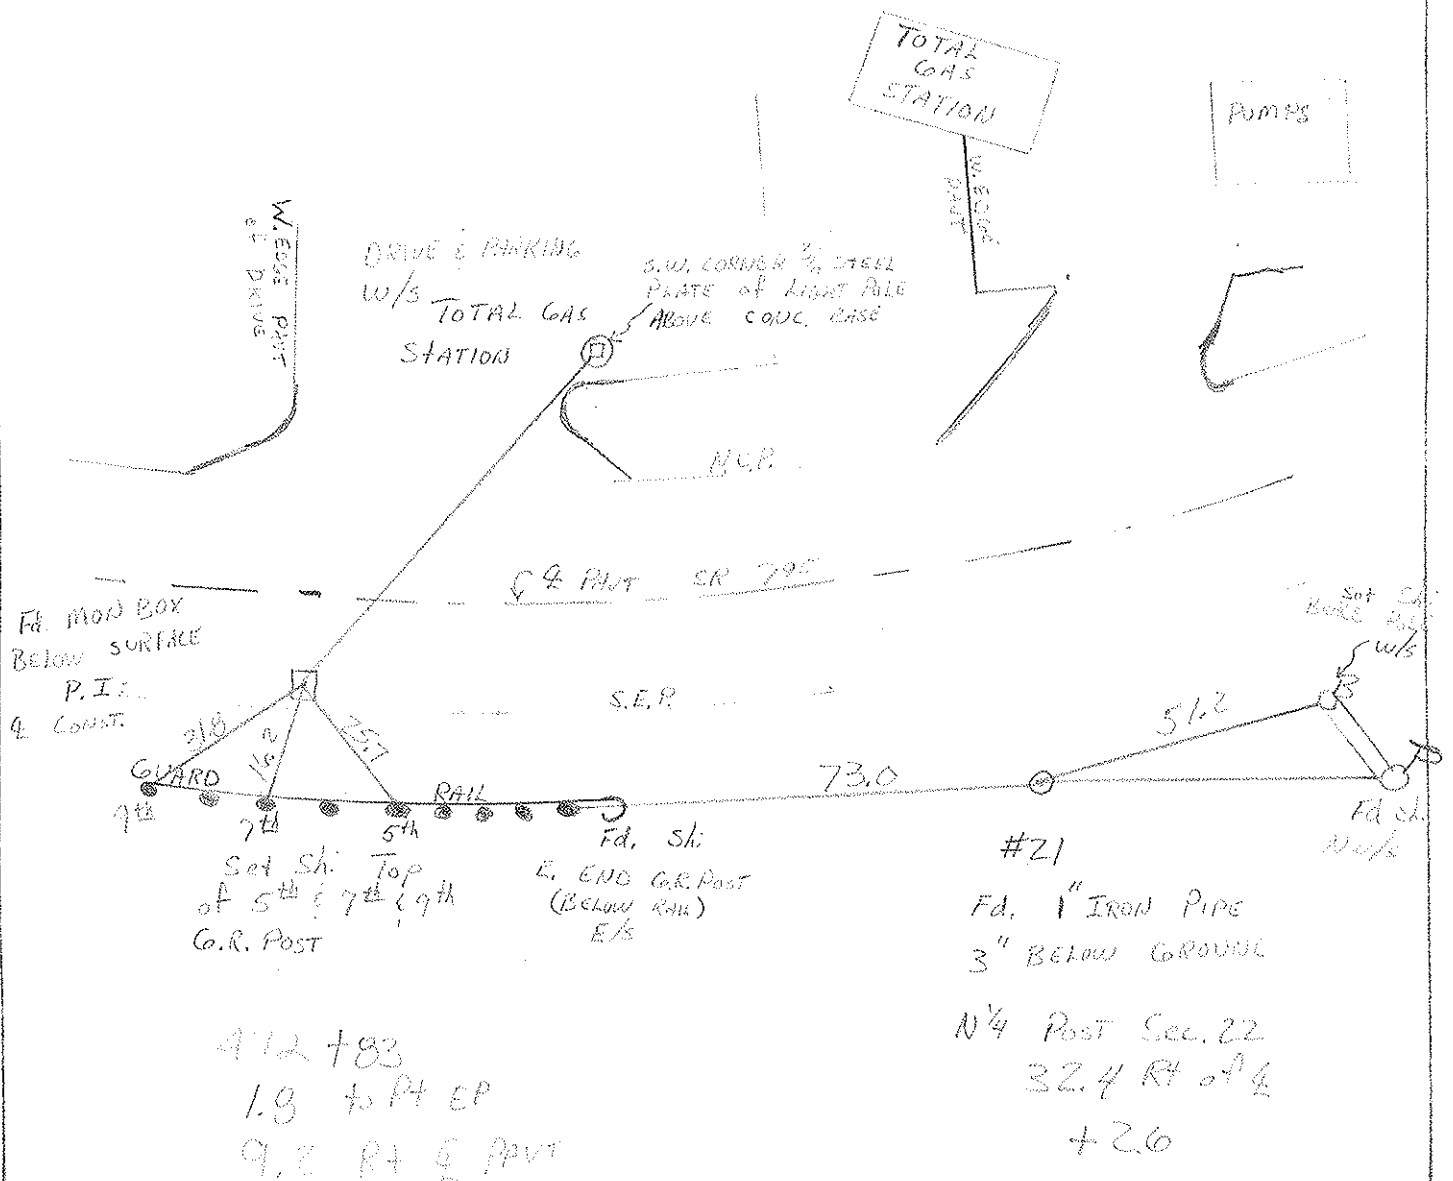 TOTAL
GAS
STATION
PUMPS
W. EDGE
PAVT
W. EDGE PAVT
of DRIVE
DRIVE & PARKING
W/S TOTAL GAS
STATION
S.W. CORNER STEEL
PLATE of LIGHT POLE
ABOVE CONC. BASE
℄ PAVT SR 795
Fd. MON BOX
BELOW SURFACE
P.I.
℄ CONST.
S.E.P.
Set
W/S
51.2
25.7
GUARD RAIL
73.0
9th
7th
5th
Set Sh. Top
of 5th & 7th & 9th
G.R. POST
Fd. Sh.
E. END G.R. POST
(BELOW RAIL)
E/S
Fd
#21
Fd. 1" IRON PIPE
3" BELOW GROUND
N 1/4 POST Sec. 22
32.4 Rt of ℄
+2.6
+83
1.8 to Pt EP
9.2 Rt ℄ PAVT